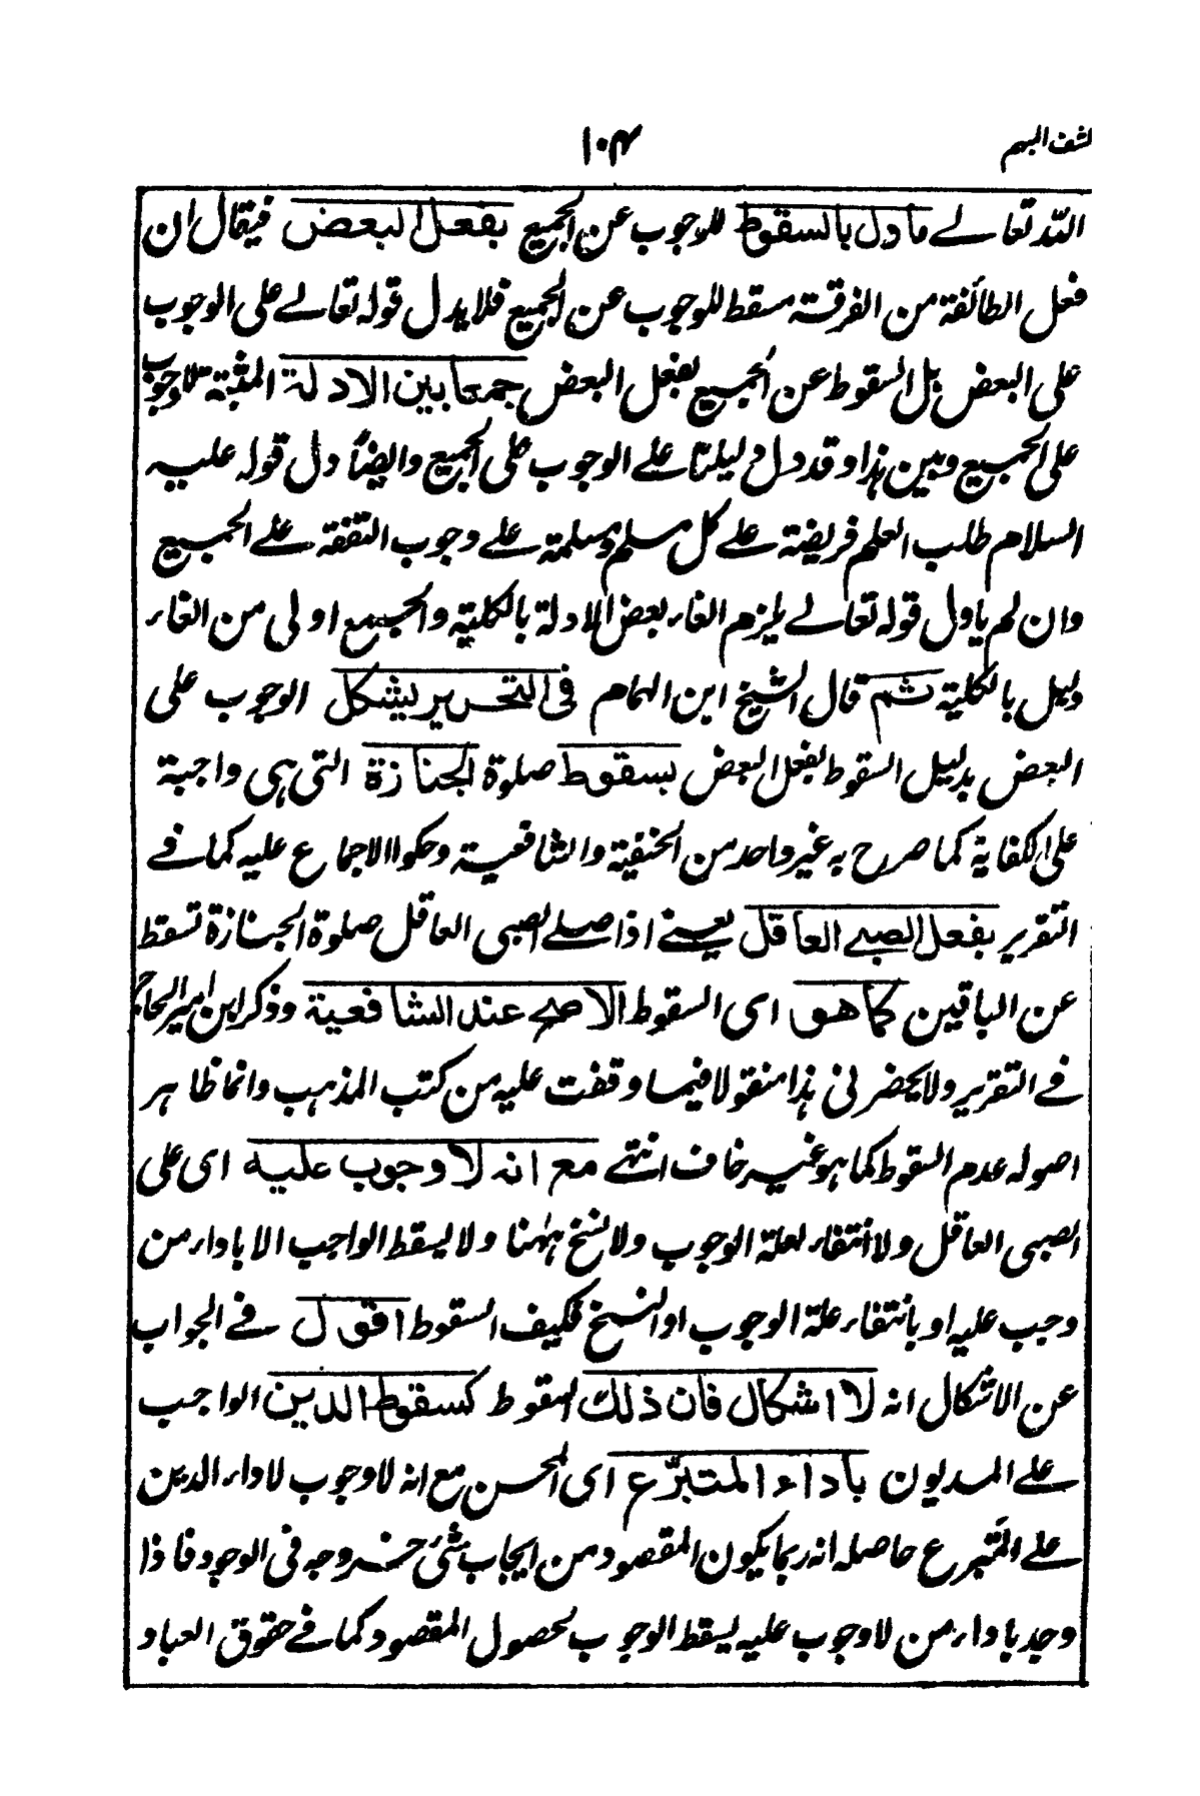 كشف المبهم
١٠٤
اللّه تعالے مادل بالسقوط للوجوب عن الجميع بفعل البعض فيقال ان
فعل الطائفة من الفرقة مسقط للوجوب عن الجميع فلا يدل قوله تعالے على الوجوب
على البعض بل السقوط عن الجميع بفعل البعض جمعا بين الادلة المثبتة للوجوب
على الجميع وبين هذا وقد دل دليلنا علے الوجوب على الجميع وايضاً دل قوله عليه
السلام طلب العلم فريضة علے كل مسلم ومسلمة علے وجوب التفقه علے الجميع
وان لم ياول قوله تعالے يلزم الغاء بعض الادلة بالكلية والجمع اولى من الغاء
دليل بالكلية ثم قال الشيخ ابن الهمام فى التحرير يشكل الوجوب على
البعض بدليل السقوط بفعل البعض بسقوط صلوة الجنازة التى هى واجبة
على الكفاية كما صرح به غير واحد من الحنفية والشافعية وحكوا الاجماع عليه كما فے
التقرير بفعل الصبے العاقل يعنے اذا صلے الصبى العاقل صلوة الجنازة تسقط
عن الباقين كما هو اى السقوط الاصح عند الشافعية وذكر ابن امير الحاج
فے التقرير ولا يحضرنى هذا منقولا فيما وقفت عليه من كتب المذهب وانما ظاهر
اصوله عدم السقوط كما هو غير خاف انتهے مع انه لا وجوب عليه اى على
الصبى العاقل ولا انتفاء لعلة الوجوب ولا نسخ ههنا ولا يسقط الواجب الا باداء من
وجب عليه او بانتفاء علة الوجوب او النسخ فكيف السقوط اقول فے الجواب
عن الاشكال انه لا اشكال فان ذلك السقوط كسقوط الدين الواجب
علے المديون باداء المتبرّع اى المحسن مع انه لا وجوب لاداء الدين
علے المتبرع حاصله انه ربما يكون المقصود من ايجاب شئ خروجه فى الوجود فاذا
وجد باداء من لا وجوب عليه يسقط الوجوب لحصول المقصود كما فے حقوق العباد